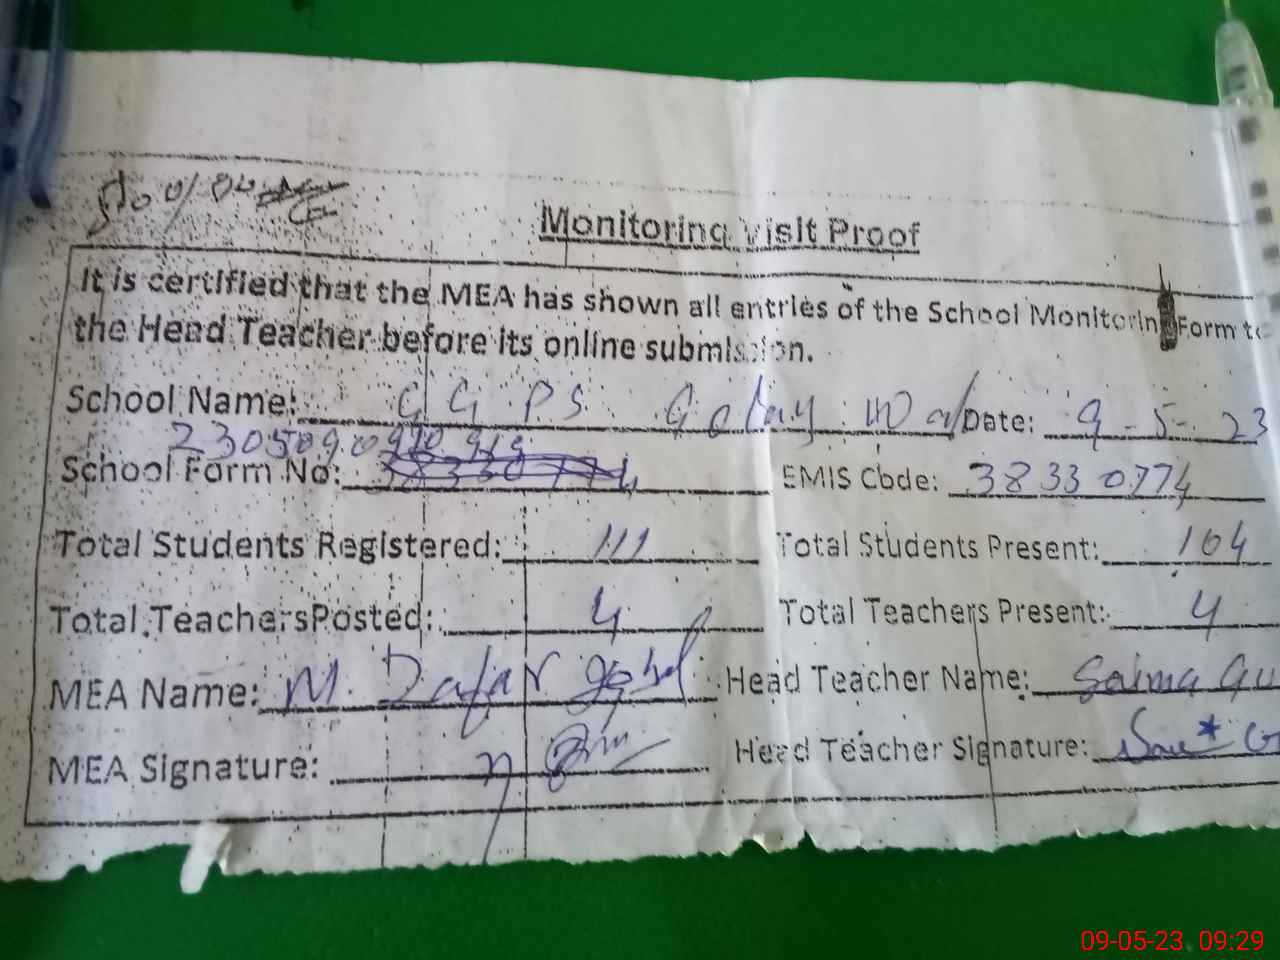 Monitoring Visit Proof
It is certified that the MEA has shown all entries of the School Monitoring Form to
the Head Teacher before its online submission.
School Name: GGPS Golay Wala Date: 9-5-23
School Form No: EMIS Code: 38330774
Total Students Registered: 111 Total Students Present: 104
Total TeachersPosted: 4 Total Teachers Present: 4
MEA Name: M. Zafar Iqbal Head Teacher Name: Salma Gu
MEA Signature: Head Teacher Signature:
09-05-23 09:29